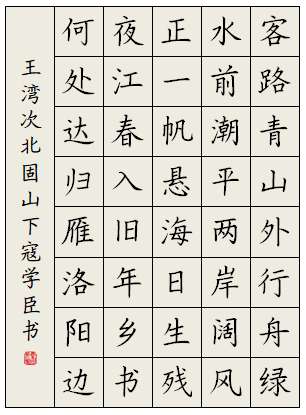 客路青山外行舟绿
水前潮平两岸阔风
正一帆悬海日生残
夜江春入旧年乡书
何处达归雁洛阳边
王湾次北固山下寇学臣书